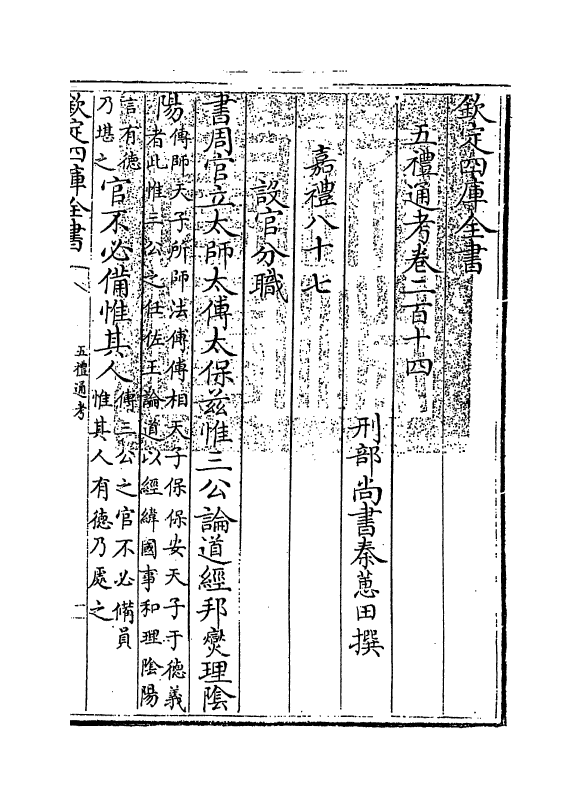 欽定四庫全書
五禮通考卷二百十四
刑部尚書秦蕙田撰
嘉禮八十七
設官分職
書周官立太師太傅太保兹惟三公論道經邦燮理陰
陽傳師天子所師法傅傅相天子保保安天子于德義
者此惟三公之任佐王論道以經緯國事和理陰陽
言有德
乃堪之官不必備惟其人傳三公之官不必備員
惟其人有德乃處之
欽定四庫全書
五禮通考